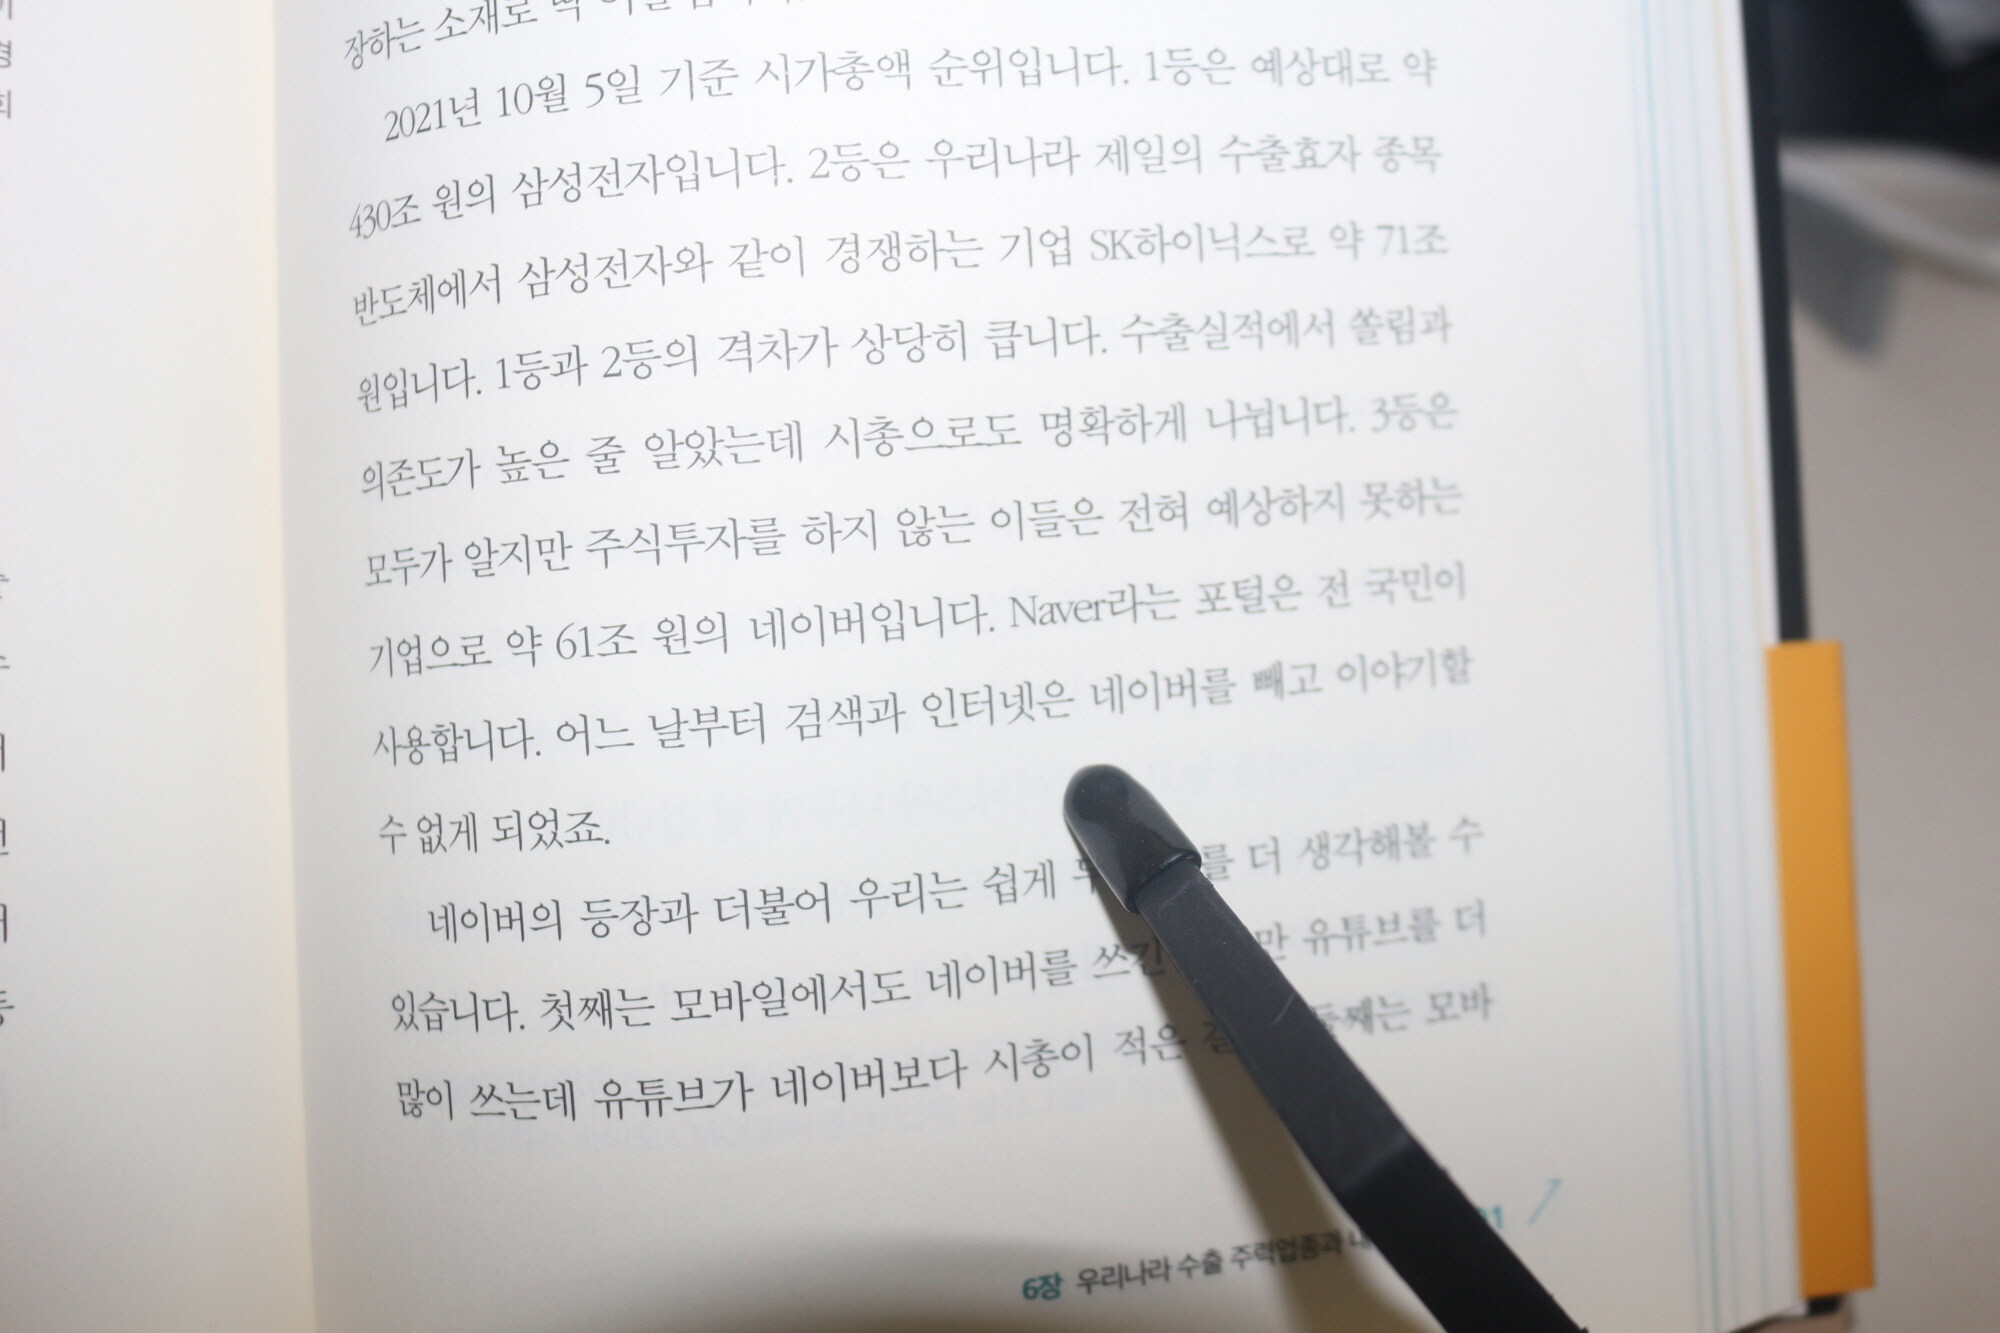 장하는 소재로 딱
2021년 10월 5일 기준 시가총액 순위입니다. 1등은 예상대로 약
430조 원의 삼성전자입니다. 2등은 우리나라 제일의 수출효자 종목
반도체에서 삼성전자와 같이 경쟁하는 기업 SK하이닉스로 약 71조
원입니다. 1등과 2등의 격차가 상당히 큽니다. 수출실적에서 쏠림과
의존도가 높은 줄 알았는데 시총으로도 명확하게 나뉩니다. 3등은
모두가 알지만 주식투자를 하지 않는 이들은 전혀 예상하지 못하는
기업으로 약 61조 원의 네이버입니다. Naver라는 포털은 전 국민이
사용합니다. 어느 날부터 검색과 인터넷은 네이버를 빼고 이야기할
수 없게 되었죠.
네이버의 등장과 더불어 우리는 쉽게 를 더 생각해볼 수
있습니다. 첫째는 모바일에서도 네이버를 쓰긴 만 유튜브를 더
많이 쓰는데 유튜브가 네이버보다 시총이 적은 둘째는 모바
6장 우리나라 수출 주력업종과